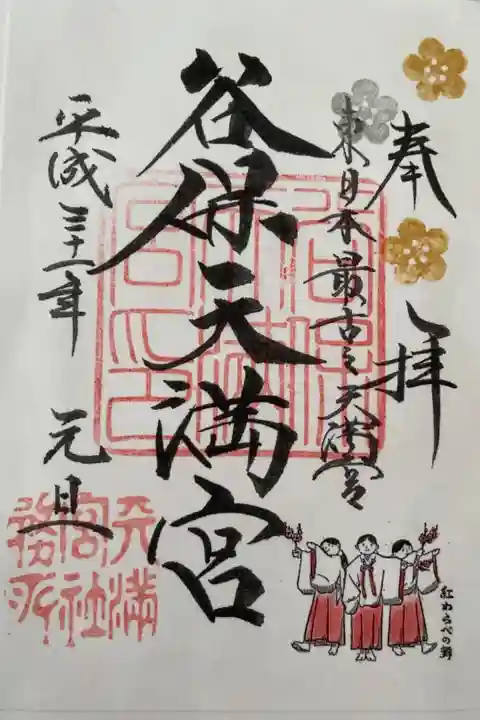 奉拝
東日本最古之天満宮
谷保天満宮
平成三十一年 元旦
天満
宮社
務所
紅わらべの舞